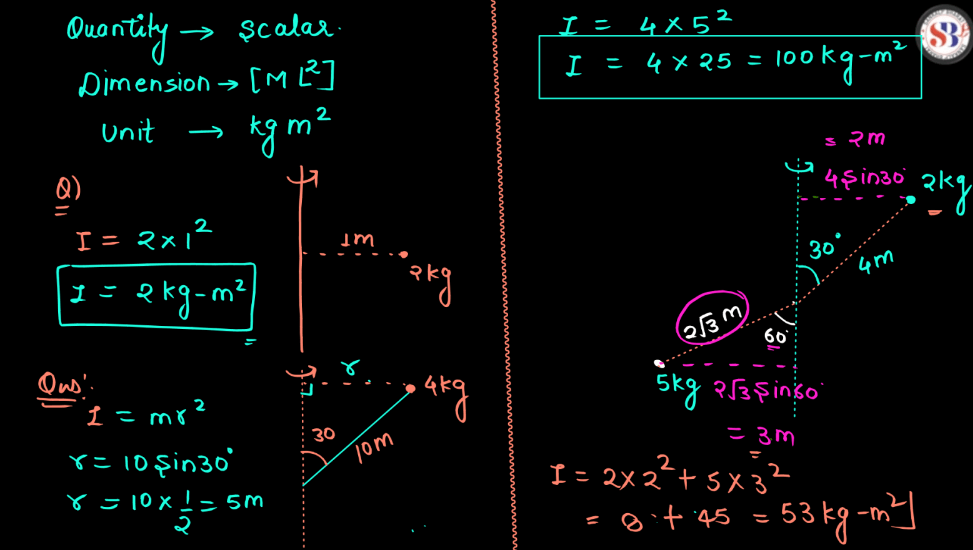 Quantity → Scalar.
Dimension → [M L²]
Unit → kg m²
Q)
I = 2 × 1²
I = 2 kg-m²
=
1m
2kg
Qus:
I = mr²
r = 10 Sin30°
r = 10 × 1/2 = 5m
r
4kg
30
10m
I = 4 × 5²
I = 4 × 25 = 100 kg-m²
SB
= 2m
4 Sin30°
2kg
30°
4m
2√3 m
60°
5kg
2√3 Sin60°
= 3m
I = 2×2² + 5×3²
= 8 + 45 = 53 kg-m²]